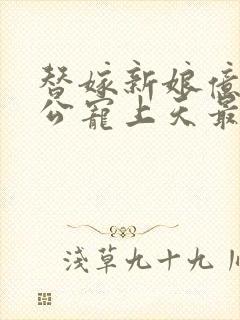 替嫁新娘億
公寵上天最
淺草九十九